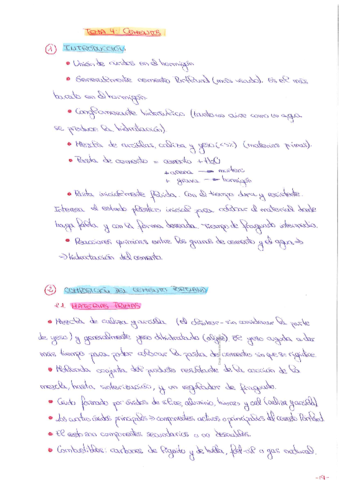 TEMA 4 CEMENTOS
1 INTRODUCCIÓN
• Unión de áridos en el hormigón
• Generalmente cemento Portland (más usado). Es el más
barato en el hormigón.
• Conglomerante hidráulico (tanto en aire como en agua
se produce la hidratación).
• Mezcla de arcillas, caliza y yeso (materias primas).
• Pasta de cemento = cemento + H2O
+ arena → mortero
+ grava → hormigón
• Pasta inicialmente fluida. Con el tiempo dura y resistente.
Interesa el estado plástico inicial para colocar el material donde
haga falta y con la forma deseada. Tiempo de fraguado intermedio.
• Reacciones químicas entre los granos de cemento y el agua →
→ Hidratación del cemento.
2 COMPOSICIÓN DEL CEMENTO PORTLAND
MATERIAS PRIMAS
• Mezcla de caliza y arcilla (el clínker sin considerar la parte
de yeso) y generalmente yeso dihidratado El yeso ayuda a dar
más tiempo para poder colocar la pasta de cemento sin que se rigidice.
• Molienda conjunta del producto resultante de la cocción de la
mezcla, hasta sinterización, y un regulador de fraguado.
• Crudo formado por óxidos de sílice, aluminio, hierro y cal (caliza y arcilla)
• Los cuatro óxidos principales → componentes activos o principales del cemento Portland
• El resto son componentes secundarios o no deseables.
• Combustibles: carbones de lignito y de hulla, fuel-oil o gas natural.